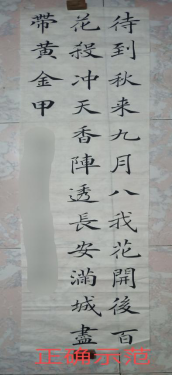 待到秋来九月八我花開後百
花殺冲天香陣透長安滿城盡
帶黃金甲
正确示范